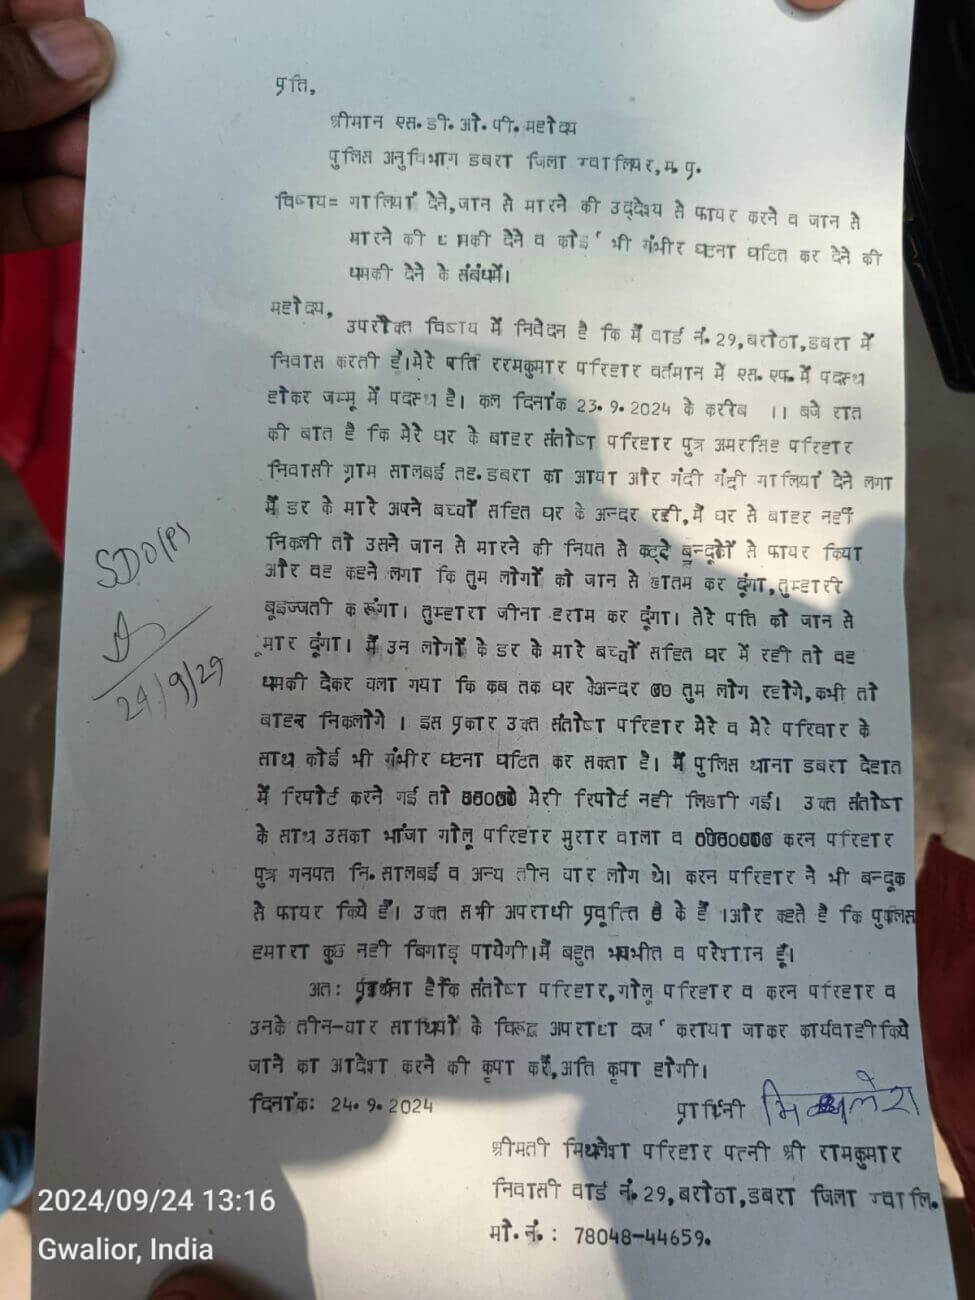 प्रति,
श्रीमान एस.डी.ओ.पी.महोदय
पुलिस अनुविभाग डबरा जिला ग्वालियर,म.प्र.
विषय= गालियां देने,जान से मारने की उद्देश्य से फायर करने व जान से
मारने की धमकी देने व कोई भी गंभीर घटना घटित कर देने की
धमकी देने के संबंधमें।
महोदय,
उपरोक्त विषय में निवेदन है कि मैं वार्ड नं.29,बरोठा,डबरा में
निवास करती हूँ।मेरे पति रामकुमार परिहार वर्तमान में एस.एफ.में पदस्थ
होकर जम्मू में पदस्थ है। कल दिनांक 23.9.2024 के करीब ।। बजे रात
की बात है कि मेरे घर के बाहर संतोष परिहार पुत्र अमरसिंह परिहार
निवासी ग्राम सालबई तह.डबरा का आया और गंदी गंदी गालियां देने लगा
मैं डर के मारे अपने बच्चों सहित घर के अन्दर रही,मैं घर से बाहर नहीं
निकली तो उसने जान से मारने की नियत से कट्टे बन्दूकों से फायर किया
और वह कहने लगा कि तुम लोगों को जान से खतम कर दूंगा,तुम्हारी
बूइज्जती करूंगा। तुम्हारा जीना हराम कर दूंगा। तेरे पति को जान से
मार दूंगा। मैं उन लोगों के डर के मारे बच्चों सहित घर में रही तो वह
धमकी देकर चला गया कि कब तक घर केअन्दर तुम लोग रहोगे,कभी तो
बाहर निकलोगे । इस प्रकार उक्त संतोष परिहार मेरे व मेरे परिवार के
साथ कोई भी गंभीर घटना घटित कर सकता है। मैं पुलिस थाना डबरा देहात
में रिपोर्ट करने गई तो मेरी रिपोर्ट नही लिखी गई। उक्त संतोष
के साथ उसका भांजा गोलू परिहार मुरार वाला व करन परिहार
पुत्र गनपत नि.सालबई व अन्य तीन चार लोग थे। करन परिहार ने भी बन्दूक
से फायर किये हैं। उक्त सभी अपराधी प्रवृत्ति के हैं ।और कहते है कि पुलिस
हमारा कुछ नही बिगाड़ पायेगी।मैं बहुत भयभीत व परेशान हूँ।
अत: प्रार्थना हैकि संतोष परिहार,गोलू परिहार व करन परिहार व
उनके तीन-चार साथियों के विरूद्ध अपराध दर्ज कराया जाकर कार्यवाही किये
जाने का आदेश करने की कृपा करें,अति कृपा होगी।
दिनांक: 24.9.2024
प्रार्थिनी मिथलेश
श्रीमती मिथलेश परिहार पत्नी श्री रामकुमार
निवासी वार्ड नं.29,बरोठा,डबरा जिला ग्वालि.
मो.नं.: 78048-44659.
SDO(P)
24/9/29
2024/09/24 13:16
Gwalior, India